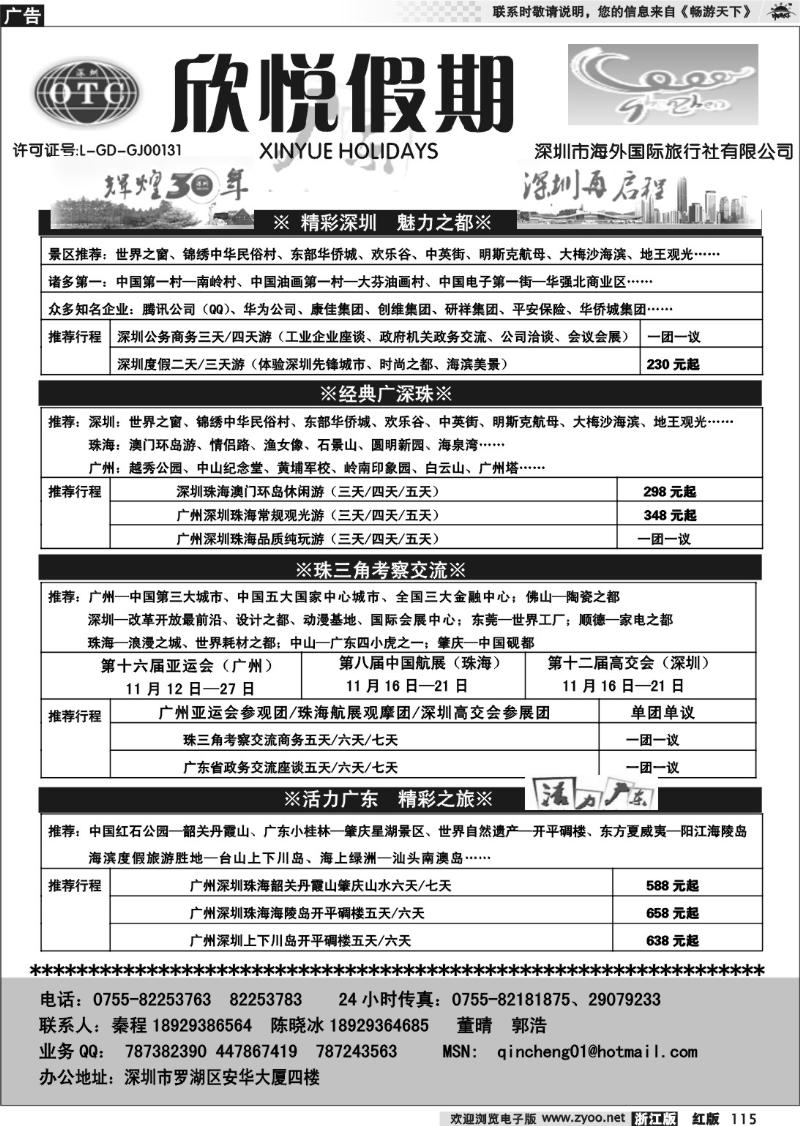 广告
联系时敬请说明，您的信息来自《畅游天下》
深圳
OTC
欣悦假期
许可证号:L-GD-GJ00131
XINYUE HOLIDAYS
深圳市海外国际旅行社有限公司
辉煌30年
深圳再启程
※ 精彩深圳 魅力之都※
景区推荐：世界之窗、锦绣中华民俗村、东部华侨城、欢乐谷、中英街、明斯克航母、大梅沙海滨、地王观光……
诸多第一：中国第一村—南岭村、中国油画第一村—大芬油画村、中国电子第一街—华强北商业区……
众多知名企业：腾讯公司（QQ）、华为公司、康佳集团、创维集团、研祥集团、平安保险、华侨城集团……
推荐行程 深圳公务商务三天/四天游（工业企业座谈、政府机关政务交流、公司洽谈、会议会展） 一团一议
深圳度假二天/三天游（体验深圳先锋城市、时尚之都、海滨美景） 230 元起
※经典广深珠※
推荐：深圳：世界之窗、锦绣中华民俗村、东部华侨城、欢乐谷、中英街、明斯克航母、大梅沙海滨、地王观光……
珠海：澳门环岛游、情侣路、渔女像、石景山、圆明新园、海泉湾……
广州：越秀公园、中山纪念堂、黄埔军校、岭南印象园、白云山、广州塔……
推荐行程 深圳珠海澳门环岛休闲游（三天/四天/五天） 298 元起
广州深圳珠海常规观光游（三天/四天/五天） 348 元起
广州深圳珠海品质纯玩游（三天/四天/五天） 一团一议
※珠三角考察交流※
推荐：广州—中国第三大城市、中国五大国家中心城市、全国三大金融中心；佛山—陶瓷之都
深圳—改革开放最前沿、设计之都、动漫基地、国际会展中心；东莞—世界工厂；顺德—家电之都
珠海—浪漫之城、世界耗材之都；中山—广东四小虎之一；肇庆—中国砚都
第十六届亚运会（广州） 第八届中国航展（珠海） 第十二届高交会（深圳）
11 月 12 日—27 日 11 月 16 日—21 日 11 月 16 日—21 日
推荐行程 广州亚运会参观团/珠海航展观摩团/深圳高交会参展团 单团单议
珠三角考察交流商务五天/六天/七天 一团一议
广东省政务交流座谈五天/六天/七天 一团一议
※活力广东 精彩之旅※
活力广东
推荐：中国红石公园—韶关丹霞山、广东小桂林—肇庆星湖景区、世界自然遗产—开平碉楼、东方夏威夷—阳江海陵岛
海滨度假旅游胜地—台山上下川岛、海上绿洲—汕头南澳岛……
推荐行程 广州深圳珠海韶关丹霞山肇庆山水六天/七天 588 元起
广州深圳珠海海陵岛开平碉楼五天/六天 658 元起
广州深圳上下川岛开平碉楼五天/六天 638 元起
电话：0755-82253763 82253783 24 小时传真：0755-82181875、29079233
联系人：秦程 18929386564 陈晓冰 18929364685 董晴 郭浩
业务 QQ： 787382390 447867419 787243563 MSN: qincheng01@hotmail.com
办公地址：深圳市罗湖区安华大厦四楼
欢迎浏览电子版 www.zyoo.net 浙江版 红版 115